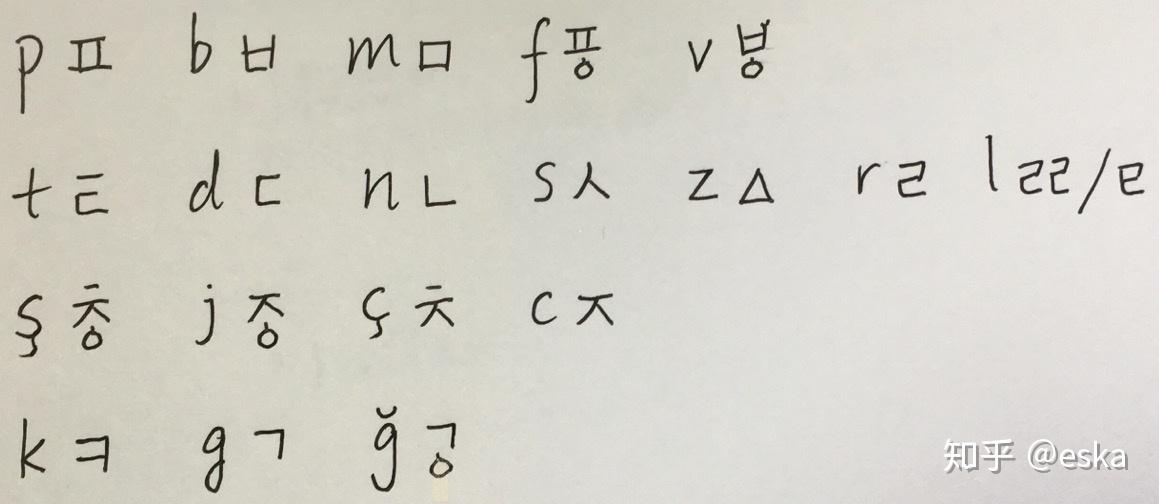 p ㅍ b ㅂ m ㅁ f ㆄ v ㅸ
t ㅌ d ㄷ n ㄴ s ㅅ z ㅿ r ㄹ l ㄹㄹ/
ş ㅊㅇ j ㅈㅇ ç ㅊ c ㅈ
k ㅋ g ㄱ ğ ㄱㅇ
知乎 @eska